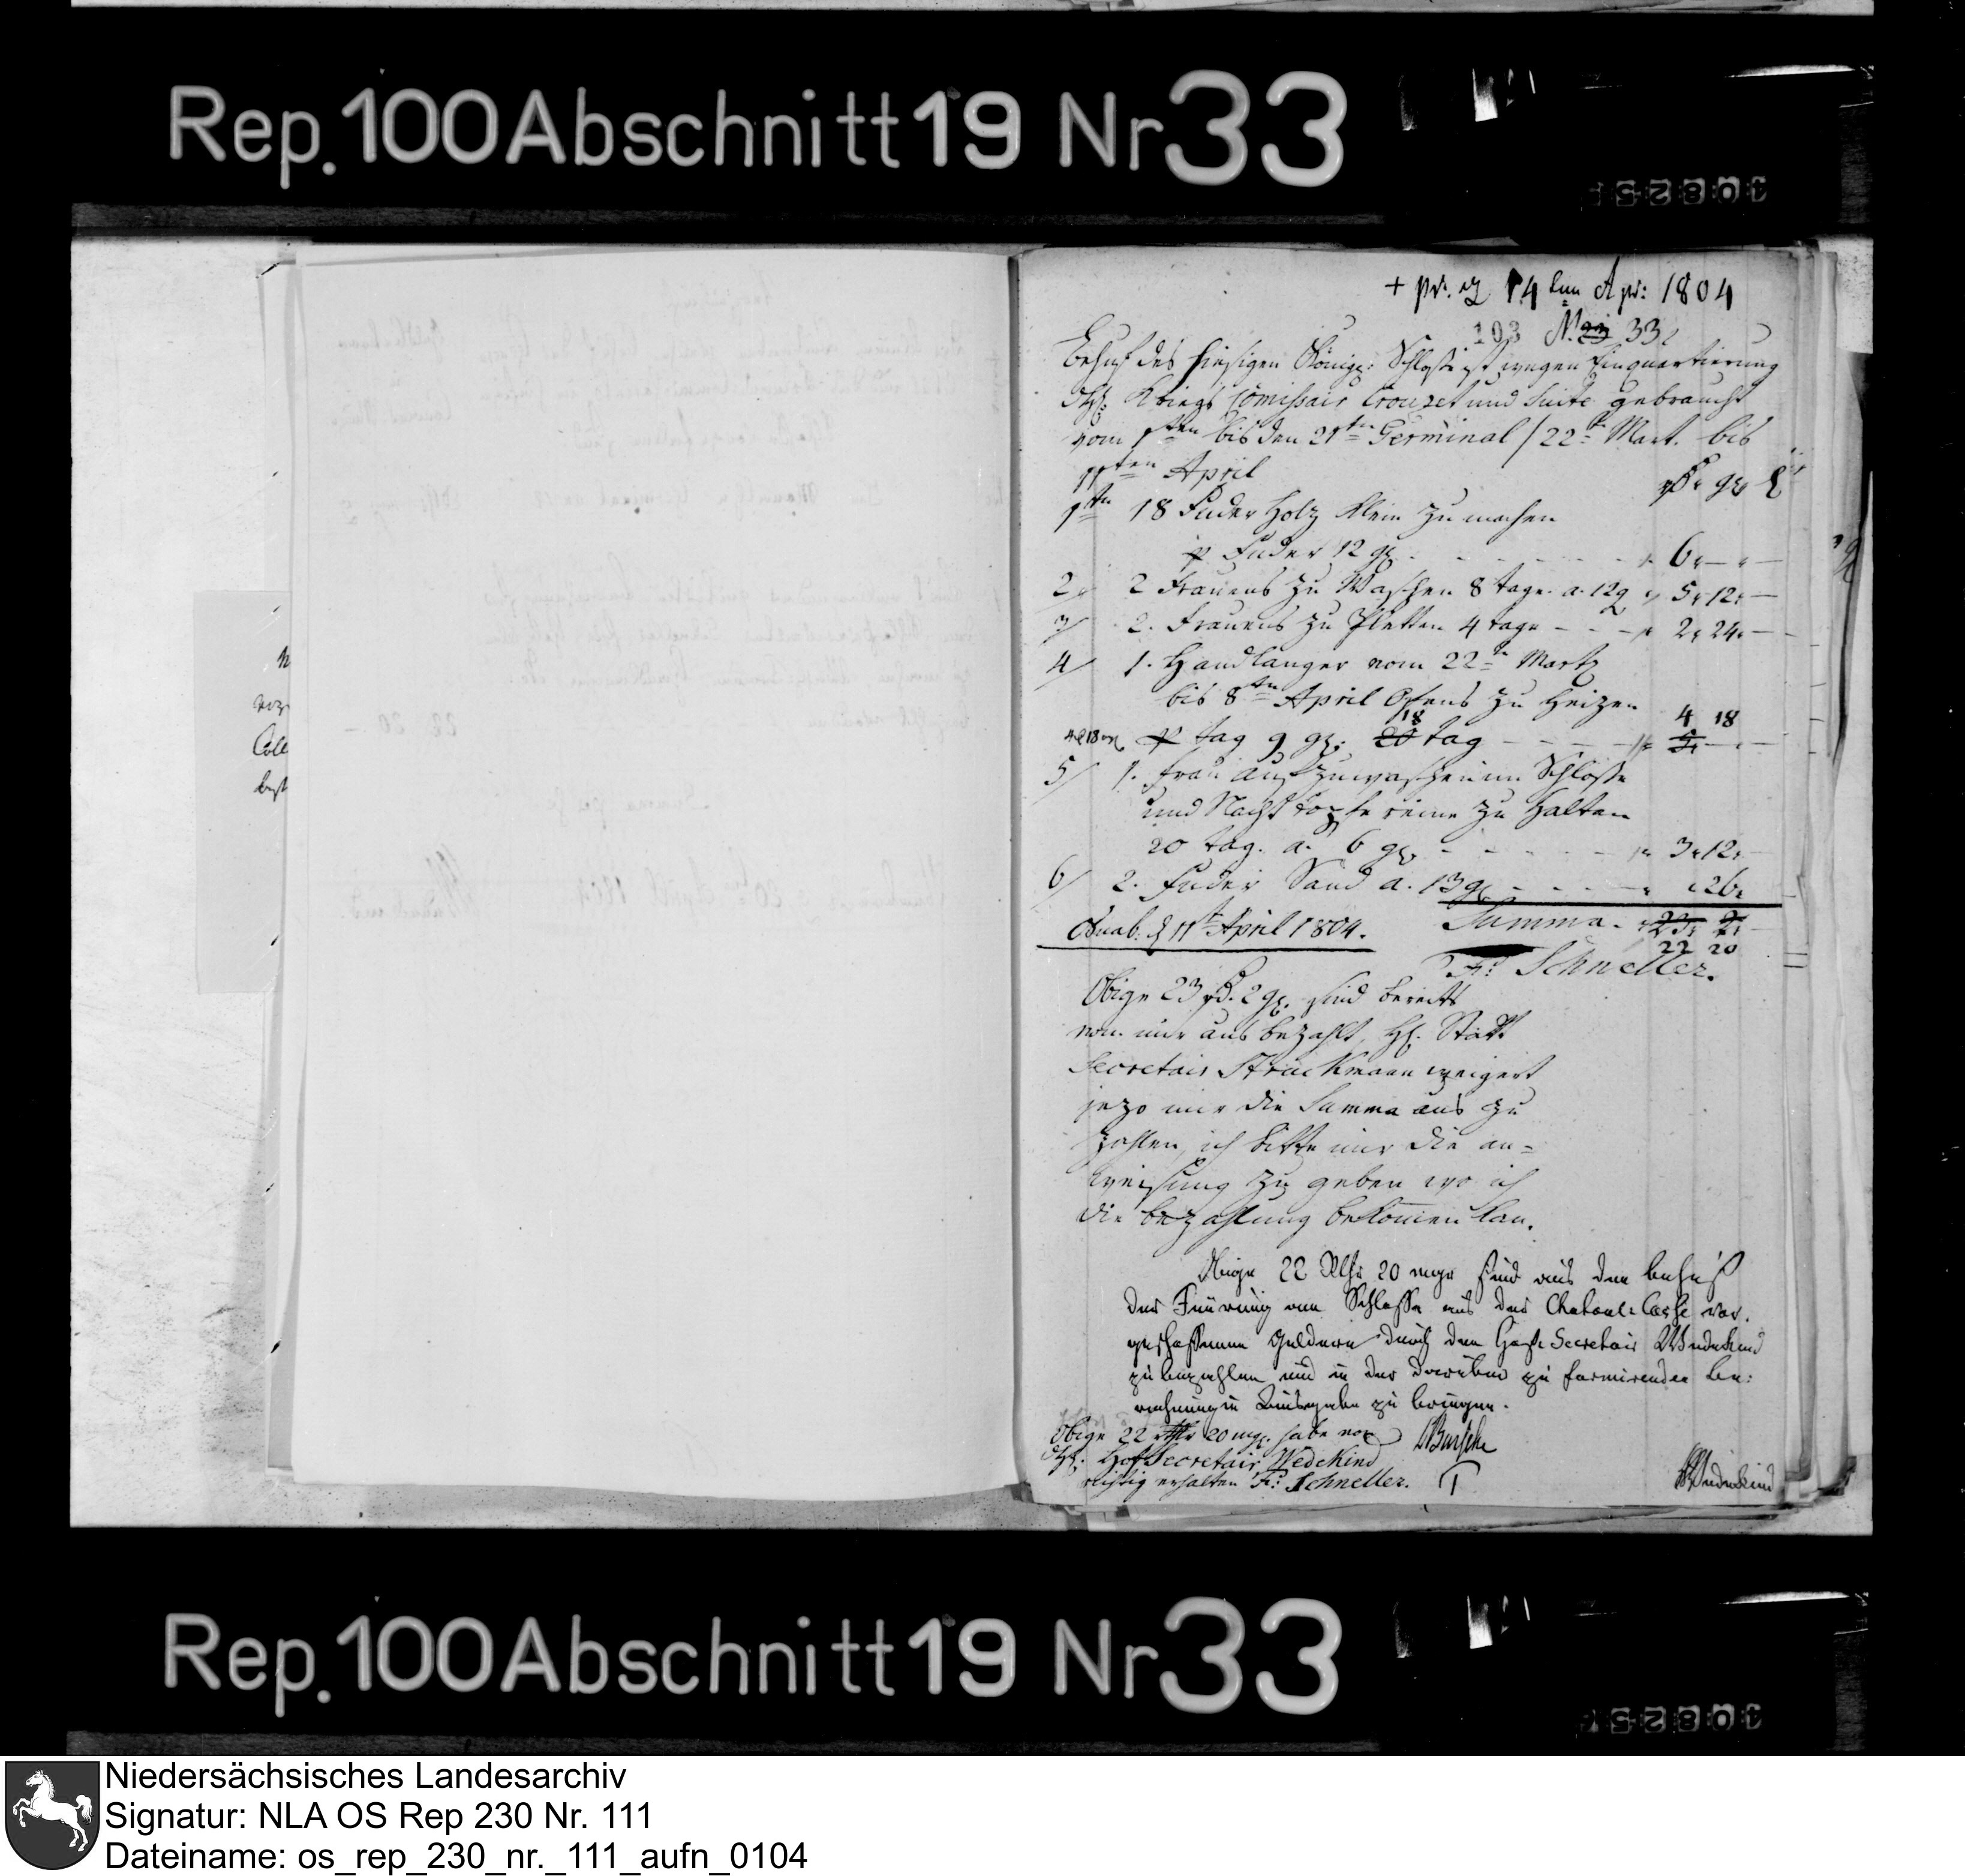 Rep. 100 Abschnitt 19 Nr 33
+ pr. 14ten Apr: 1804
103 N. 23 33
Behuf des hiesigen Königl: Schloße ist wegen Einquartierung
Kriegs Comißair Crouzet und Suite gebraucht
vom 1ten bis den 21ten Germinal / 22ten Mart. bis
11ten April
1ten 18 Fuder Holz klein zu machen
p Fuder 12 gr - - - 6 - -
2 2 Frauens zu Waschen 8 tage a. 12 g 5 12 -
3/ 2. Frauens zu Pletten 4 tage - - - 2 24 -
4/ 1. Handlanger vom 22ten Martz
bis 8ten April Ofens zu Heizen 4 18
p tag 9 gr: 20 18 tag - - - 5 -
5/ 1. Frau aufzuwaschen im Schloße
und Nacht topfe reine zu Halten
20 tag. a. 6 gr - - - 3 12
6/ 2. Fuder Sand a. 13 gr - - - 26
Osnab: d 11t April 1804. Summa. 23 2
22 20
Fr: Schneller.
Obige 23 2 gr. sind bereits
von mir aus bezahlt, H. Stadt
Secretair Struckmann weigert
jezo mir die Summa aus zu
zahlen, ich bitte mir die an=
weisung zu geben wo ich
die bezahlung bekomen kan.
Obige 22 Rthr 20 mgr sind aus den behuf
der Feurung am Schlosse aus der Chatoul-Casse vor.
geschossenen Geldern durch den Hof-Secretair Wedekind
zu bezahlen und in der darüber zu formirenden Be:
rechnung in Ausgabe zu bringen.
Obige 22 rthr 20 mgr. habe von
H. Hof Secretair Wedekind
richtig erhalten Fr: Schneller.
Wedekind
Rep. 100 Abschnitt 19 Nr 33
Niedersächsisches Landesarchiv
Signatur: NLA OS Rep 230 Nr. 111
Dateiname: os_rep_230_nr._111_aufn_0104